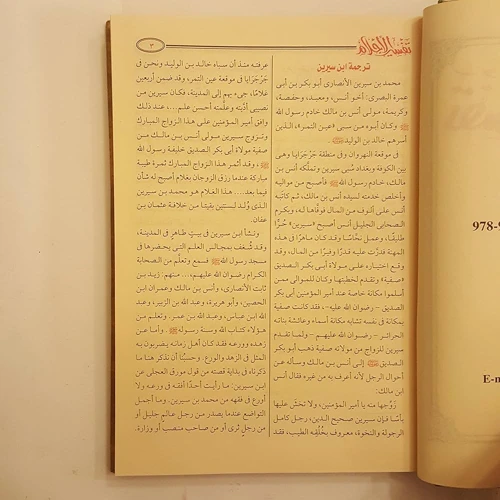 تفسير الأحلام
٣
ترجمة ابن سيرين
محمد بن سيرين الأنصارى أبو بكر بن أبى
عمرة البصرى: أخو أنس، ومعبد، وحفصة،
وكريمة، مولى أنس بن مالك خادم رسول الله
ﷺ وكان أبوه من سبى «عين التمر»، الذين
أسرهم خالد بن الوليد
فى موقعة النهروان وفى منطقة جَرْجَرَايا وهى
بين الكوفة وبغداد سُبى سيرين وتملَّكه أنس بن
مالك، خادم رسول الله ﷺ فأصبح من مواليه
وأخلص خدمته لسيده أنس بن مالك، ثم كاتَبه
أنس على ألوف من المال فوفَّاها له، وبكرم
الصحابى الجليل أنس أصبح «سيرين» حُرًّا
طليقًا، وعمل نحَّاسًا وقد كان ماهرًا فى هذه
المهنة فدرَّت عليه قدرًا وفرًا من المال، وقد
وقع اختياره على مولاة أبى بكر الصديق
«صفية» وتقدم لخطبتها وكان للموالى ممن
أسلموا مكانة خاصة عند أمير المؤمنين أبى بكر
الصديق – رضوان الله عليه-، فقد كانت صفية
بمكانة فى نفسه تشابه مكانة أسماء وعائشة بناته
الحرائر – رضوان الله عليهم – ولمَّا تقدم
سيرين للزواج من مولاته صفية ذهب أبو بكر
الصديق إلى أنس بن مالك وسأله عن
أحوال الرجل لأنه أعرف به من غيره فقال أنس
ابن مالك:
زَوِّجها منه يا أمير المؤمنين، ولا تخشَ عليها
بأسًا فإن سيرين صحيح الدين، رجل كامل
الرجولة والنخوة، معروف بخُلُقه الطيب، فقد
عرفته منذ أن سباه خالد بن الوليد ونحن فى
جَرْجَرَايا فى موقعة عين التمر، وقد ضمن أربعين
غلامًا، جىء بهم إلى المدينة، فكان سيرين من
نصيبى أدَّبته وعلَّمته أحسن علم...، عند ذلك
وافق أمير المؤمنين على هذا الزواج المبارك
وتزوج سيرين مولى أنس بن مالك من
صفية مولاة أبى بكر الصديق خليفة رسول الله
ﷺ، وقد أثمر هذا الزواج المبارك ثمرة طيبة
مباركة عندما رزق الزوجان بغلام أصبح له شأن
فيما بعد...، هذا الغلام هو محمد بن سيرين
الذى وُلد لسنتين بقيتا من خلافة عثمان بن
عفان.
ونشأ ابن سيرين فى بيتٍ طاهر فى المدينة،
وقد شُغف بمجالس العلم التى يحضرها فى
مسجد رسول الله ﷺ فسمع وتعلَّم من الصحابة
الكرام رضوان الله عليهم،... منهم: زيد بن
ثابت الأنصارى، وأنس بن مالك وعمران ابن
الحصين، وأبو هريرة، وعبد الله بن الزبير، وعبد
الله ابن عباس، وعبد الله بن عمر. وتعلم من
هؤلاء كتاب الله وسنة رسوله ﷺ. وأما عن
زهده وورعه فقد كان أهل زمانه يضربون به
المثل فى الزهد والورع؛ وحسبُنا أن نذكر هنا ما
ذكرناه فى بداية قصته من قول مورق العجلى عن
ابن سيرين: ما رأيت أحدًا أفقه فى ورعه ولا
أورع فى فقهه من محمد بن سيرين. وما أجمل
التواضع عندما يصدر من رجل عالم جليل أو
من رجل ثرى أو من صاحب منصب أو وزارة.
978-9